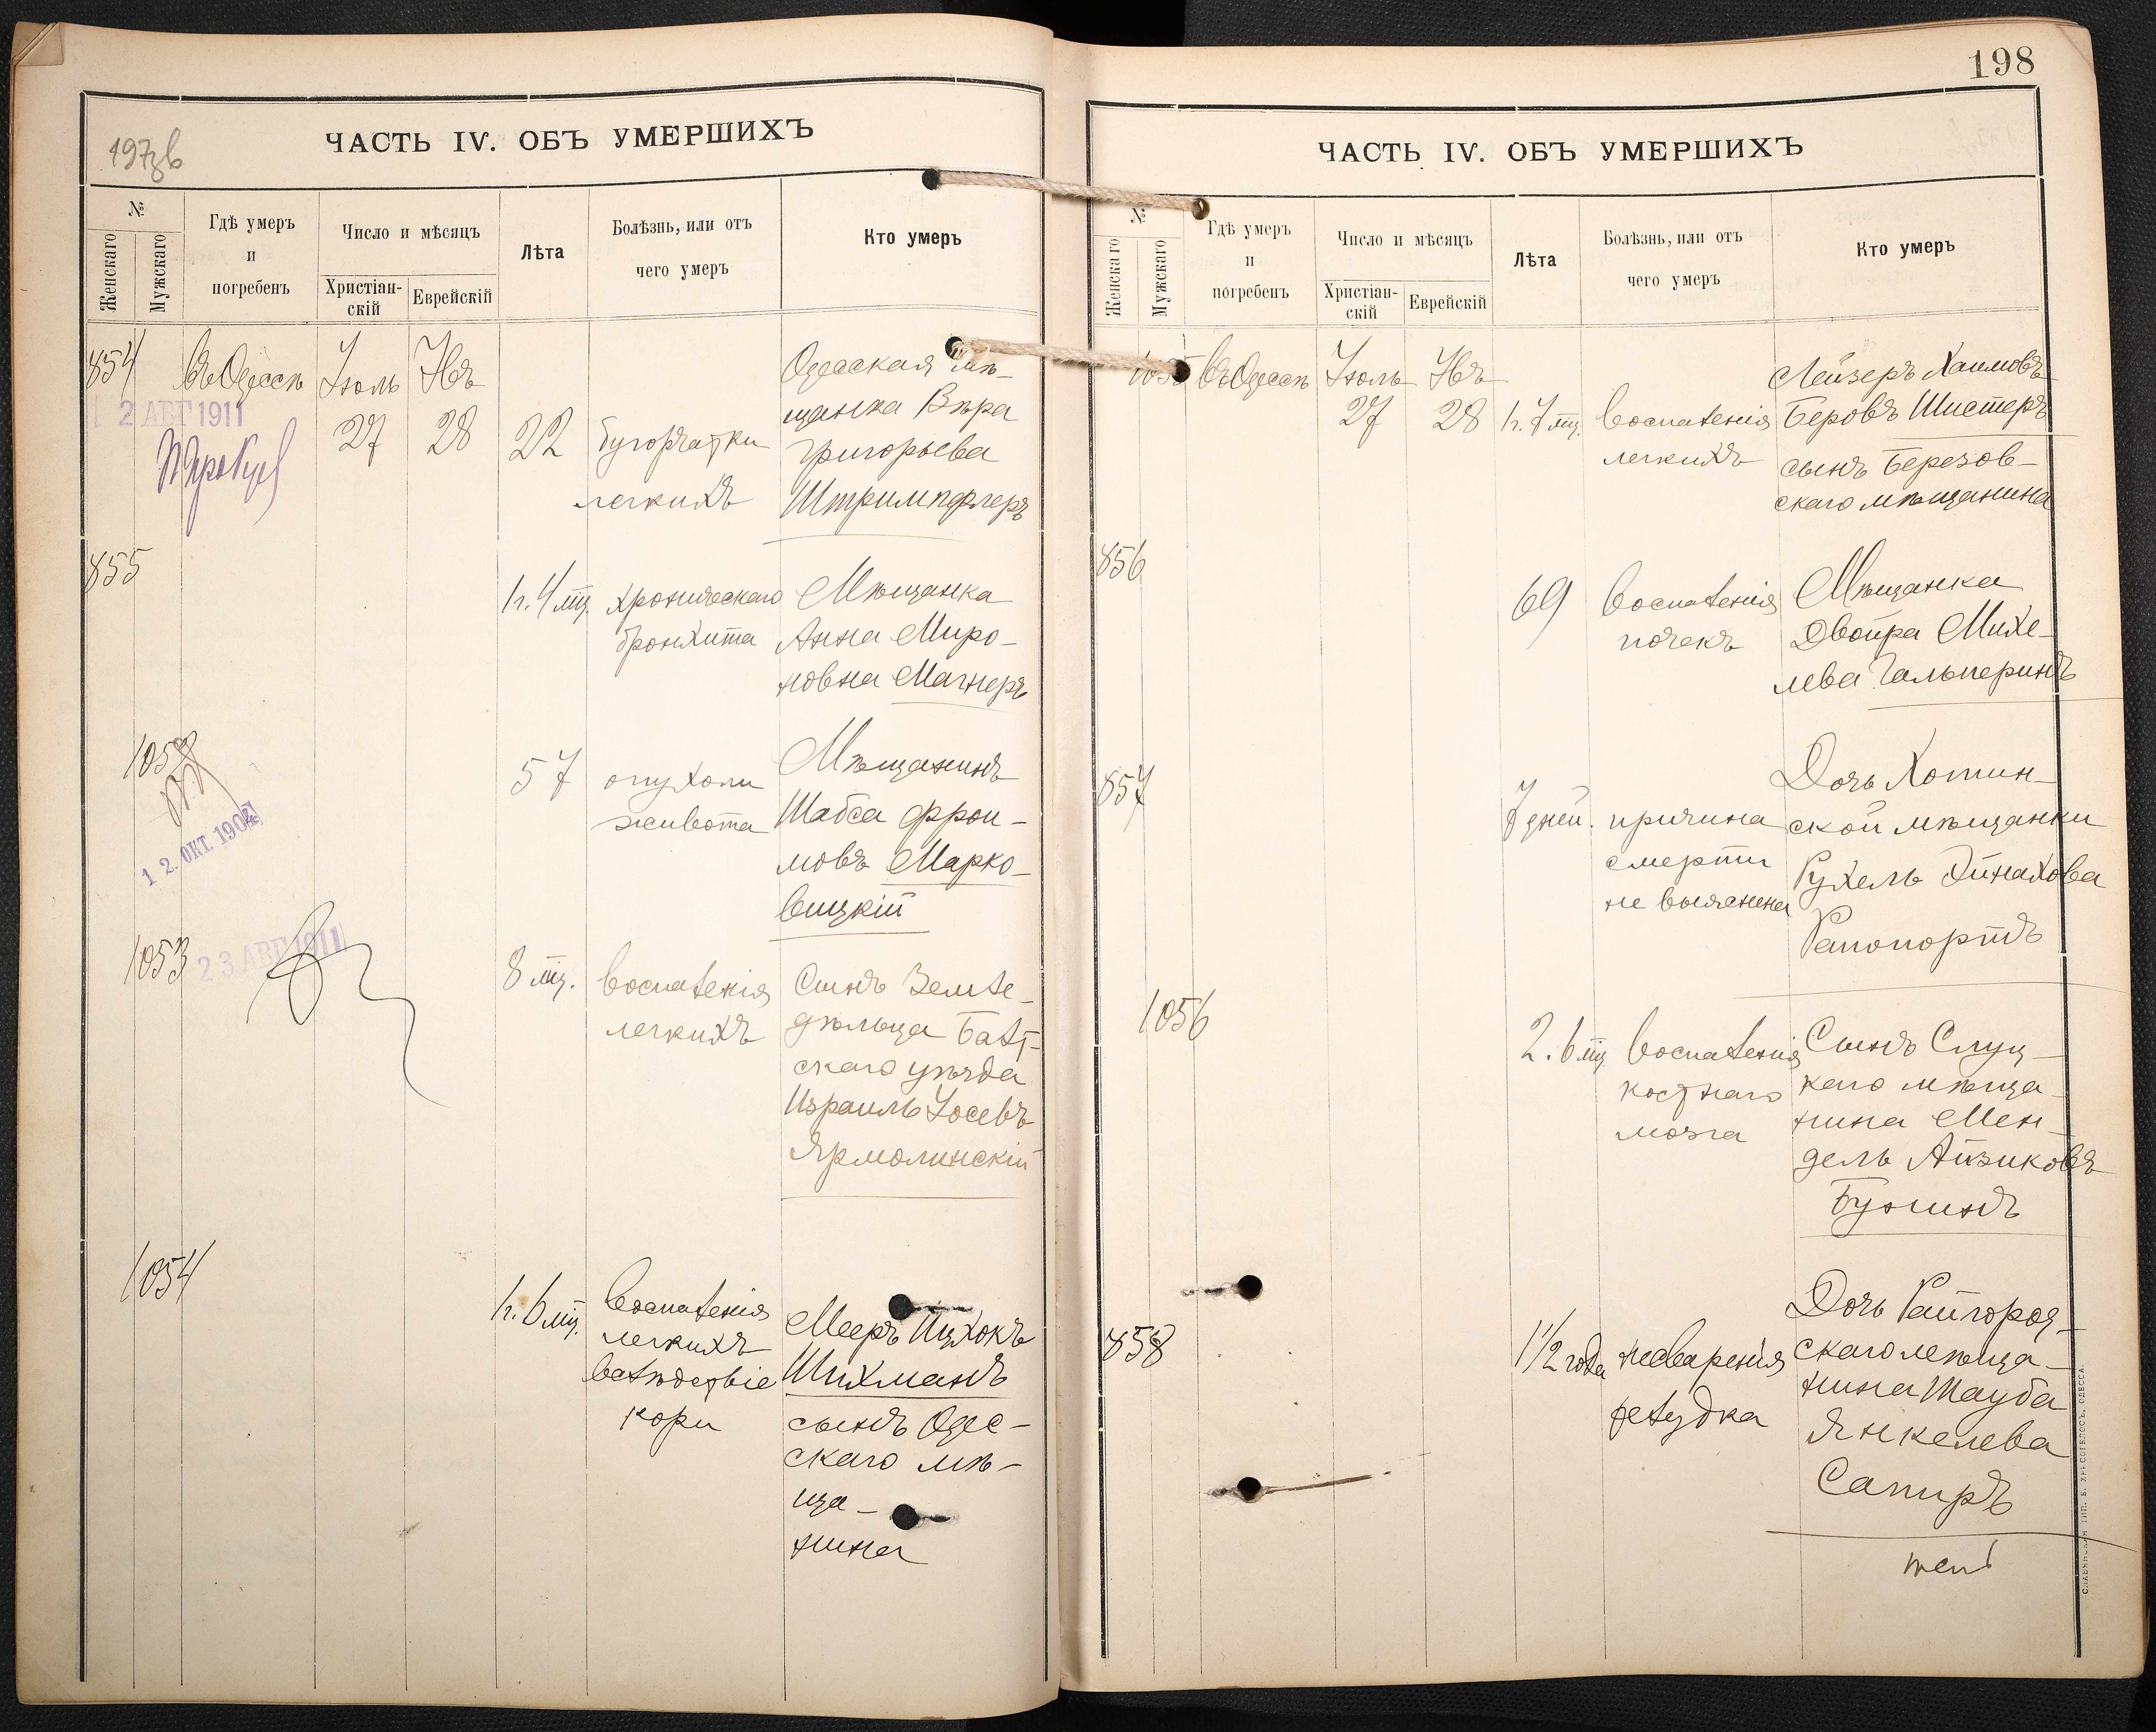 197об
ЧАСТЬ IV. ОБЪ УМЕРШИХЪ
№
Женскаго
Мужскаго
Гдѣ умеръ
и
погребенъ
Число и мѣсяцъ
Христіан-
скій
Еврейскій
Лѣта
Болѣзнь, или отъ
чего умеръ
Кто умеръ
854
Въ Одессѣ
Іюль
27
28
22
бугорчатки
легкихъ
Одесская мѣ-
щанка Вѣра
Григорьева
Штримпфлеръ
2 АВГ 1911
855
1 г. 4 мц.
хроническаго
бронхита
Мѣщанка
Анна Миро-
новна Магнеръ
1052
12. ОКТ. 1904
57
опухоли
живота
Мѣщанинъ
Шабса Фрои-
мовъ Марко-
вицкій
1053
23 АВГ 1911
8 мц.
воспаленія
легкихъ
Сынъ Земле-
дѣльца Балт-
скаго уѣзда
Израиль Іосевъ
Ярмолинскій
1054
1 г. 6 мц.
воспаленія
легкихъ
вслѣдствіе
кори
Мееръ Ицхокъ
Шихманъ
сынъ Одес-
скаго мѣ-
ща-
нина
198
ЧАСТЬ IV. ОБЪ УМЕРШИХЪ
№
Женскаго
Мужскаго
Гдѣ умеръ
и
погребенъ
Число и мѣсяцъ
Христіан-
скій
Еврейскій
Лѣта
Болѣзнь, или отъ
чего умеръ
Кто умеръ
1055
Въ Одессѣ
Іюль
27
28
1 г. 7 мц.
воспаленія
легкихъ
Лейзеръ Хаимовъ
Беровъ Шистеръ
сынъ Березов-
скаго мѣщанина
856
69
воспаленія
почекъ
Мѣщанка
Двойра Михе-
лева Гальперинъ
857
7 дней.
причина
смерти
не выяснена
Дочь Хотин-
ской мѣщанки
Рухель Эйнахова
Рапопортъ
1056
2. 6 мц
воспаленія
костнаго
мозга
Сынъ Слуц-
каго мѣща-
нина Мен-
дель Айзиковъ
Бунинъ
858
1 1/2 года
несваренія
желудка
Дочь Райгород-
скаго мѣща-
нина Тауба
Янкелева
Сапиръ
СЛАВЯНСКАЯ ТИП. Е. ХРИСОГЕЛОСЪ, ОДЕССА.